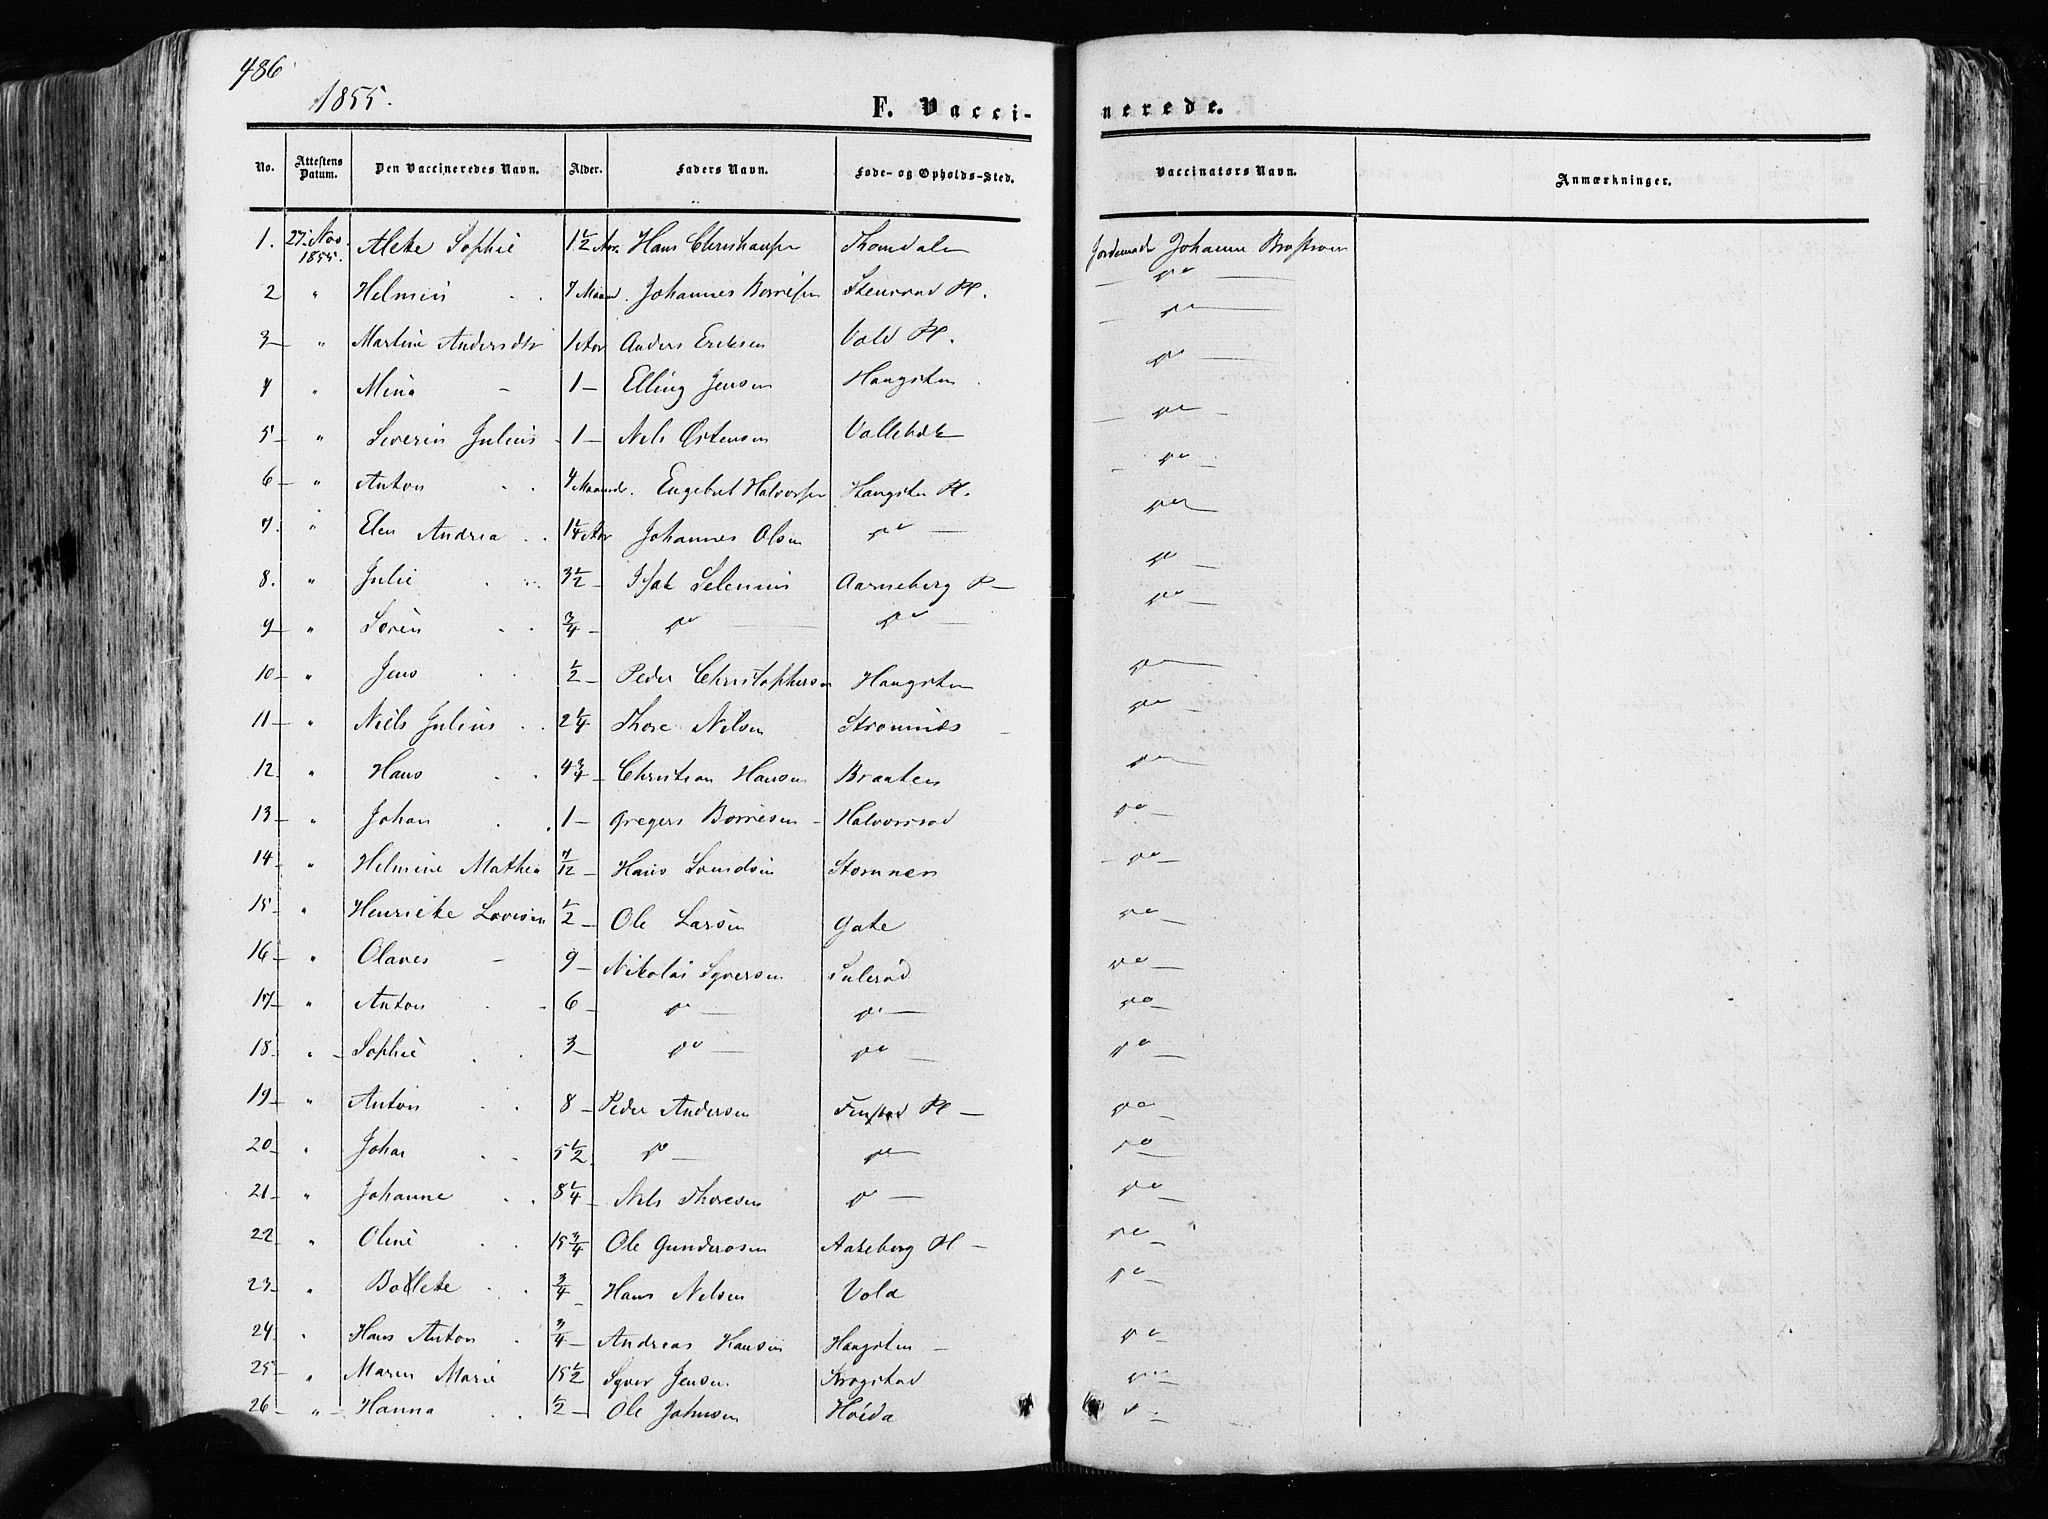 486
1855.
F. Vacci- nerede.
No. Attestens Datum. Den Vaccineredes Navn. Alder. Faders Navn. Føde- og Opholds-Sted. Vaccinators Navn. Anmærkninger.
1. 27 Nov. 1855. Alete Sophie 1 1/2 Aar. Hans Christiansen Thomdalen Jordemoder Johanne
2 " Helmin 7 Maaned. Johannes Borresen Stensrød Pl. do
3 " Martine Andersdtr 1 Aar Anders Eriksen Vold Pl. do
4 " Mina 1 Elling Jensen Haugsten do
5 " Severin Julius 1 Nils Ostensen Vallebæk do
6 " Anton 4 Maaneder. Engebret Halvorsen Haugsten Pl. do
7. " Elen Andrea 1 1/4 Aar Johannes Olsen do do
8. " Julie 3 1/2 Isak Selenius Aarneberg P do
9 " Soren 3/4 do do do
10 " Jens 1/2 Peder Christophersen Haugsten do
11 " Niels Julius 2 1/4 Thore Nilsen Stromnæs do
12 " Hans 4 3/4 Christian Hansen Braaten do
13 " Johan 1 Gregers Borresen Halvorsrød do
14 " Helmine Mathea 7/12 Hans Svendsen Stomner do
15 " Henriete Lovise 1/2 Ole Larsen Gate do
16 " Olaves 9 Nikolai Syversen Sulerød do
17 " Anton 6 do do do
18 " Sophie 3 do do do
19 " Anton 8 Peder Andersen Finstad Pl do
20 " Johan 5 1/2 do do do
21 " Johanne 8 1/4 Nils Thoresen do do
22 " Oline 15 3/4 Ole Gundersen Aakeberg Pl do
23 " Bollete 3/4 Hans Nelsen Vold do
24 " Hans Anton 3/4 Andreas Hansen Haugsten do
25 " Maren Marie 15 1/2 Syver Jensen Krogstad do
26 " Hanna 1/2 Ole Johnsen Hoida do